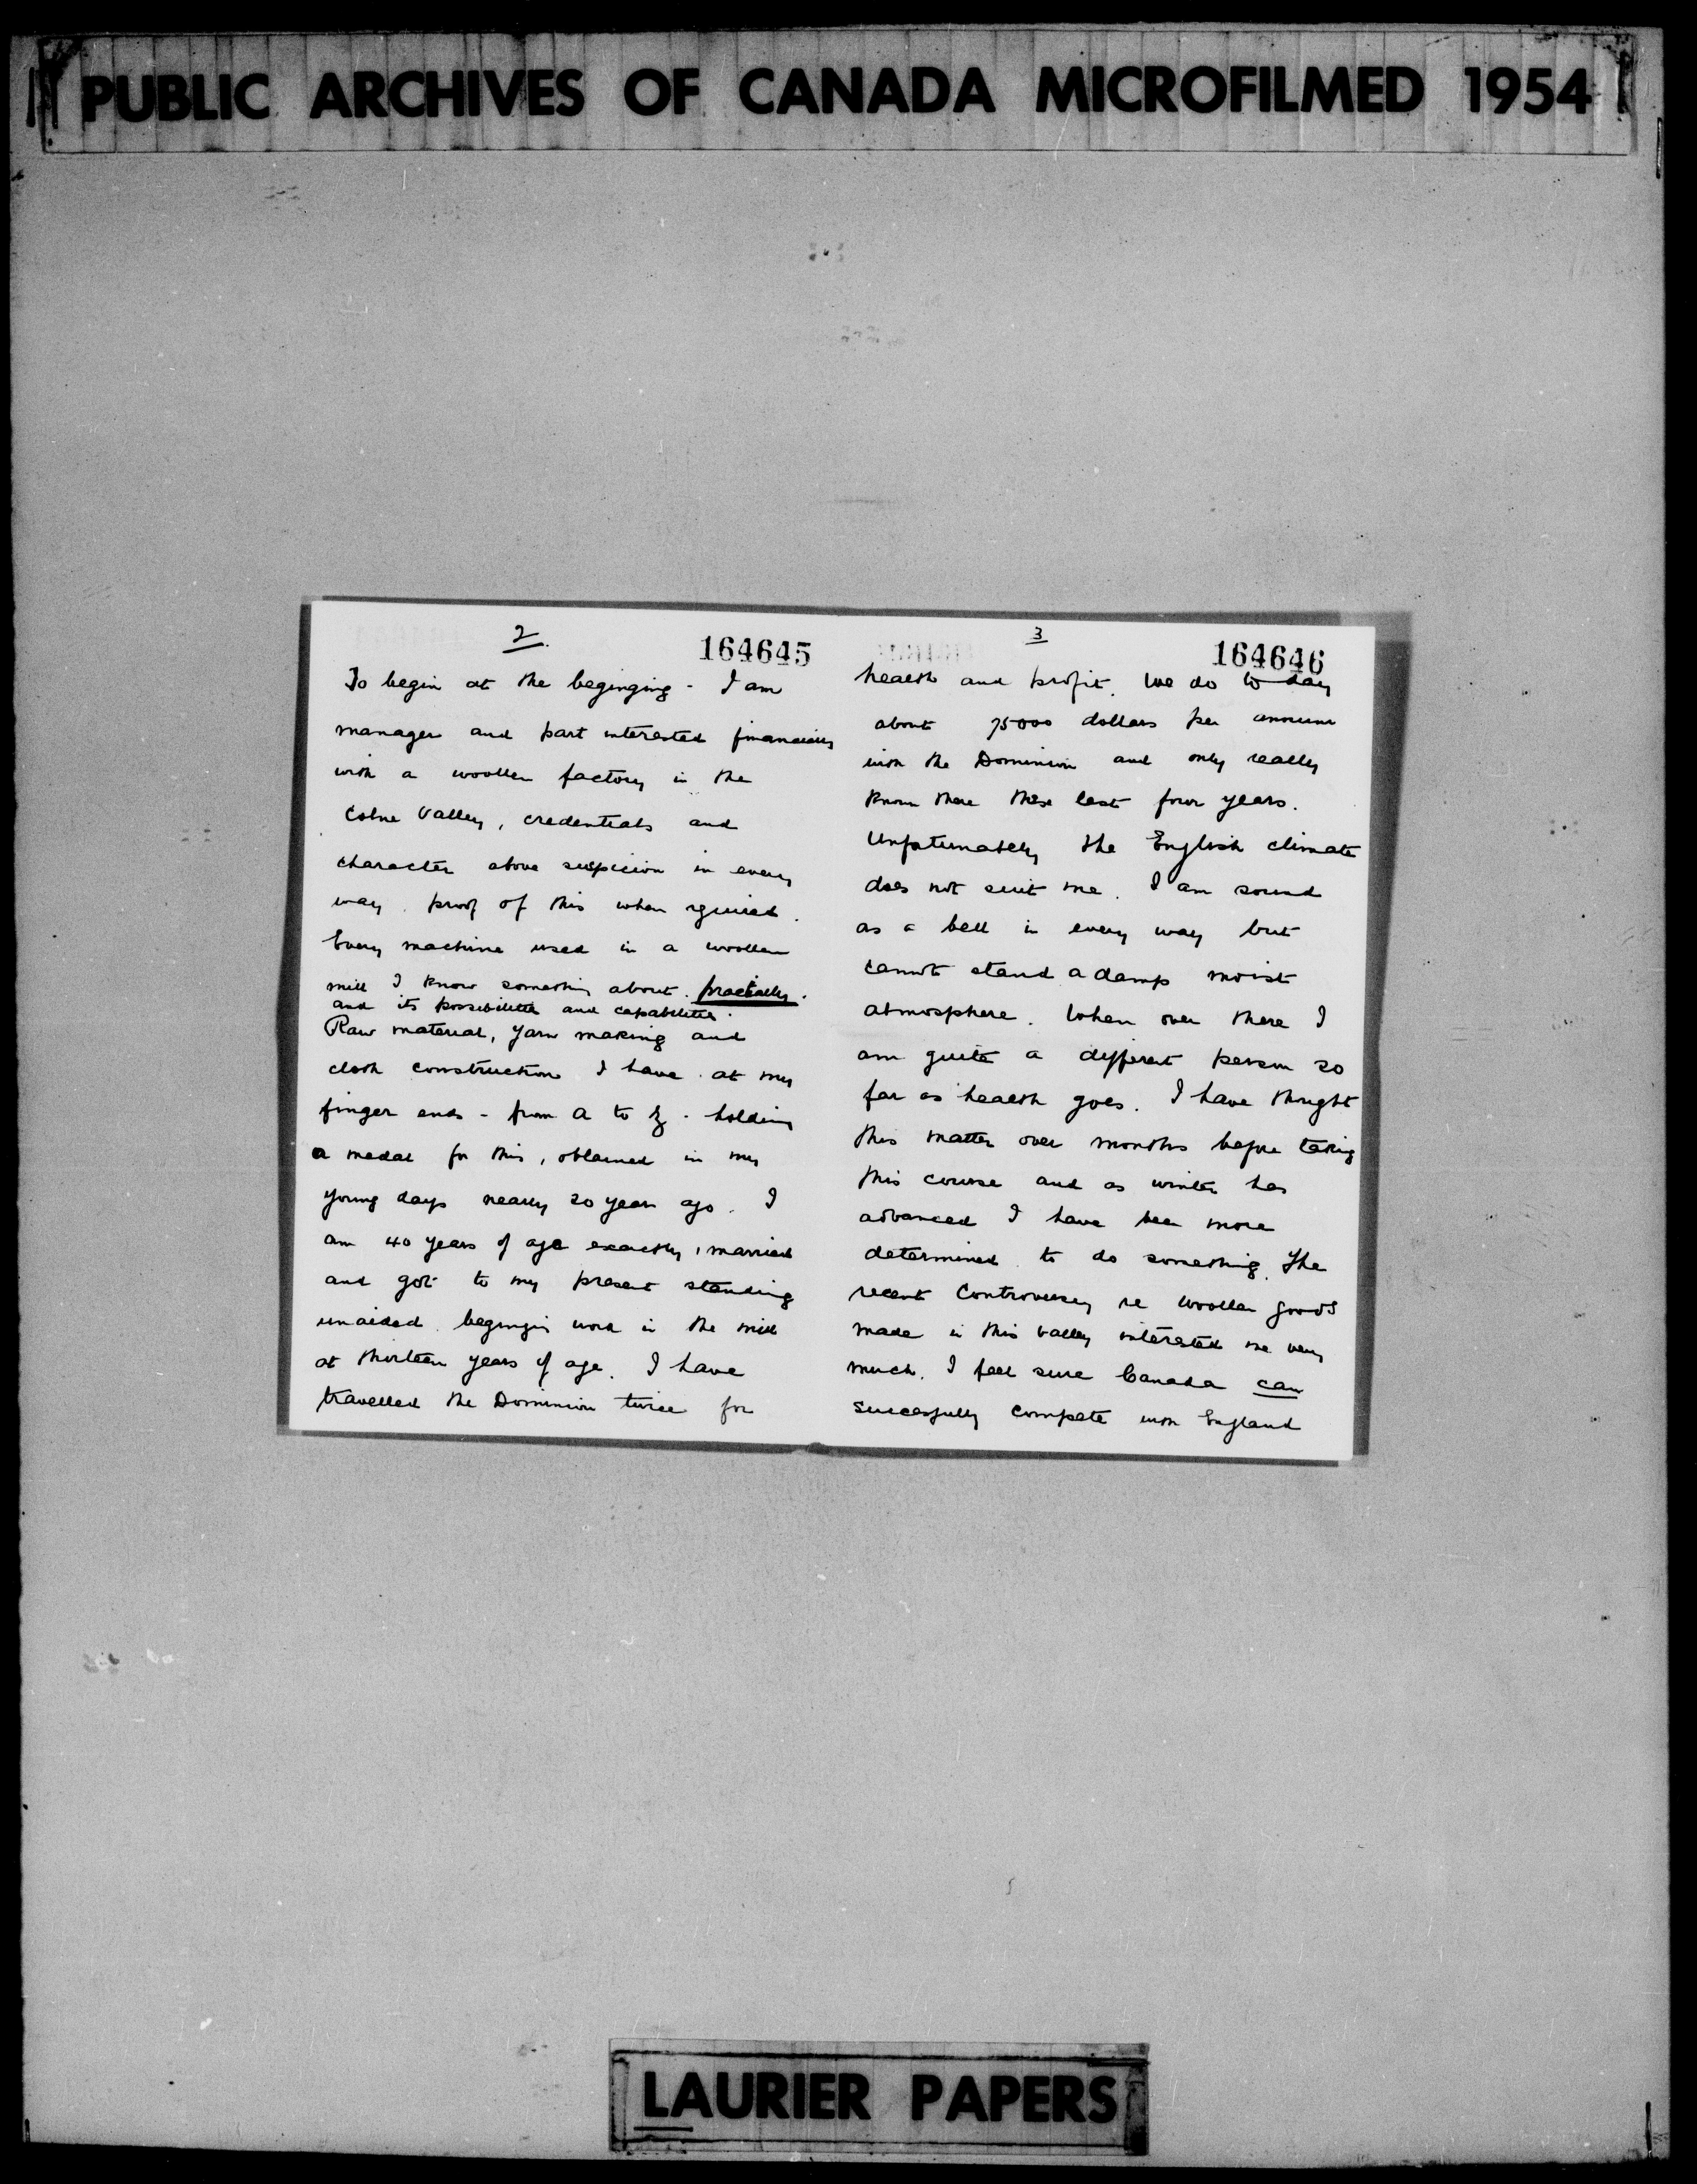 PUBLIC ARCHIVES OF CANADA MICROFILMED 1954
2
164645
To begin at the beginging - I am
manager and part interested financially
with a woollen factory in the
Colne Valley, credentials and
character above suspicion in every
way. proof of this when required.
Every machine used in a woollen
mill I know something about practically.
and its possibilities and capabilities.
Raw material, yarn making and
cloth construction I have at my
finger ends - from A to Z - holding
a medal for this, obtained in my
young days nearly 20 years ago. I
am 40 years of age exactly, married
and got to my present standing
unaided beginging work in the mill
at thirteen years of age. I have
travelled the Dominion twice for
3
164646
health and profit. We do to day
about 75000 dollars per annum
with the Dominion and only really
known there these last four years.
Unfortunately the English climate
does not suit me. I am sound
as a bell in every way but
cannot stand a damp moist
atmosphere. When over there I
am quite a different person so
far as health goes. I have thought
this matter over months before taking
this course and as winter has
advanced I have been more
determined to do something. The
recent controversy re woollen goods
made in this valley interested me very
much. I feel sure Canada can
sucessfully compete with England
LAURIER PAPERS